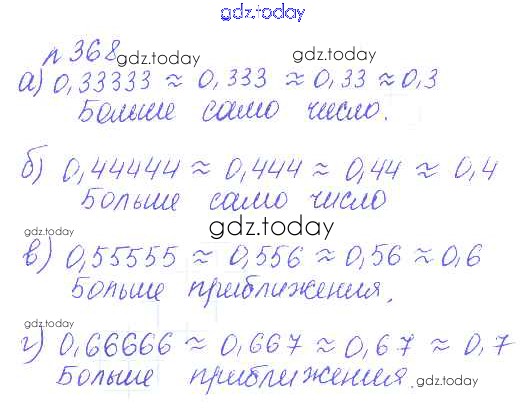 gdz.today
n 368
gdz.today gdz.today
а) 0,33333 ≈ 0,333 ≈ 0,33 ≈ 0,3
Больше само число.
б) 0,44444 ≈ 0,444 ≈ 0,44 ≈ 0,4
Больше само число
gdz.today gdz.today
в) 0,55555 ≈ 0,556 ≈ 0,56 ≈ 0,6
Больше приближения.
gdz.today
г) 0,66666 ≈ 0,667 ≈ 0,67 ≈ 0,7
Больше приближения. gdz.today